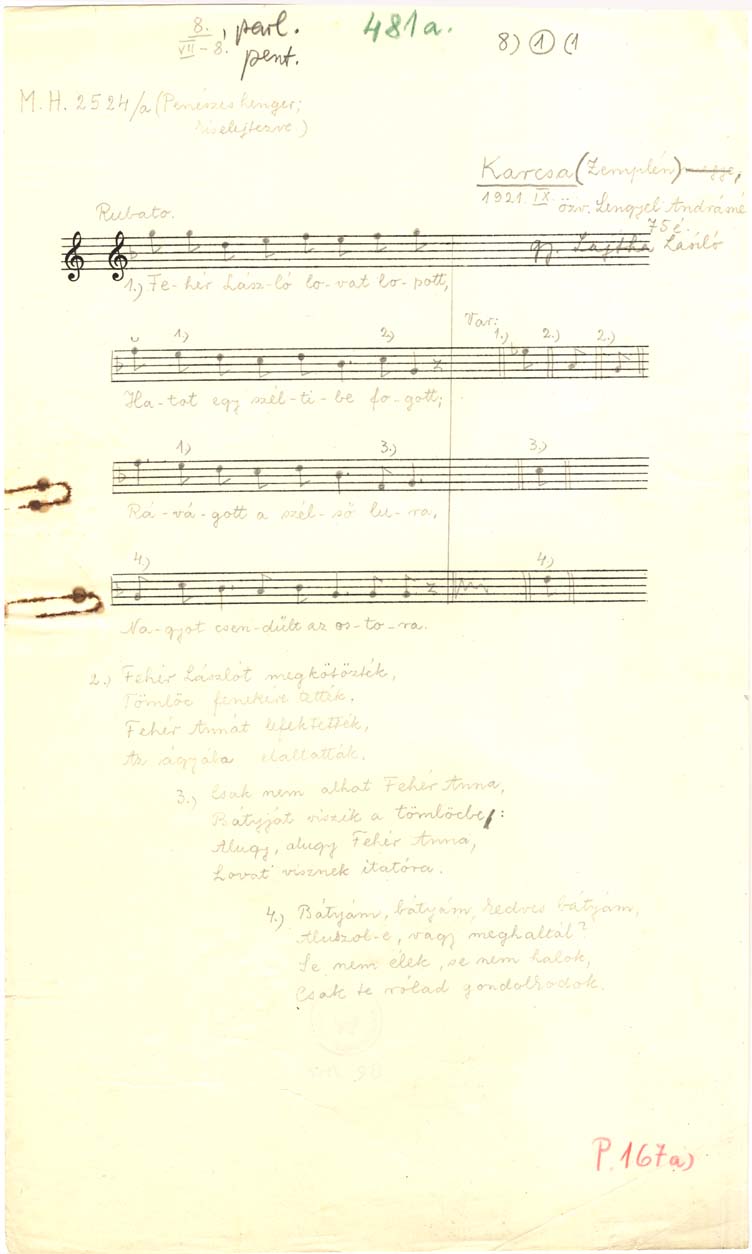 8.
VII – 8.
parl.
pent.
481a.
8) 1 (1
M. H. 2524/a (Penészes henger;
kiselejtezve)
Karcsa (Zemplén)
1921 IX.
özv. Lengyel Andrásné
75 é.
gy. Lajtha László
Rubato.
1.) Fe-hér Lász-ló lo-vat lo-pott,
1) 2) Var: 1.) 2.) 2.)
Ha-tot egy szél-ti-be fo-gott;
1) 3.) 3.)
Rá-vá-gott a szél-ső lu-ra,
4.) 4)
Na-gyot csen-dült az os-to-ra.
2.) Fehér Lászlót megkötözték,
Tömlöc fenekére tették.
Fehér Annát lefektették,
Az ágyába elaltatták.
3.) Csak nem alhat Fehér Anna,
Bátyját viszik a tömlöcbe:
Alugy, alugy Fehér Anna,
Lovat visznek itatóra.
4.) Bátyám, bátyám, kedves bátyám,
Aluszol-e, vagy meghaltál?
Se nem élek, se nem halok,
Csak te rólad gondolkodok.
P. 167a)